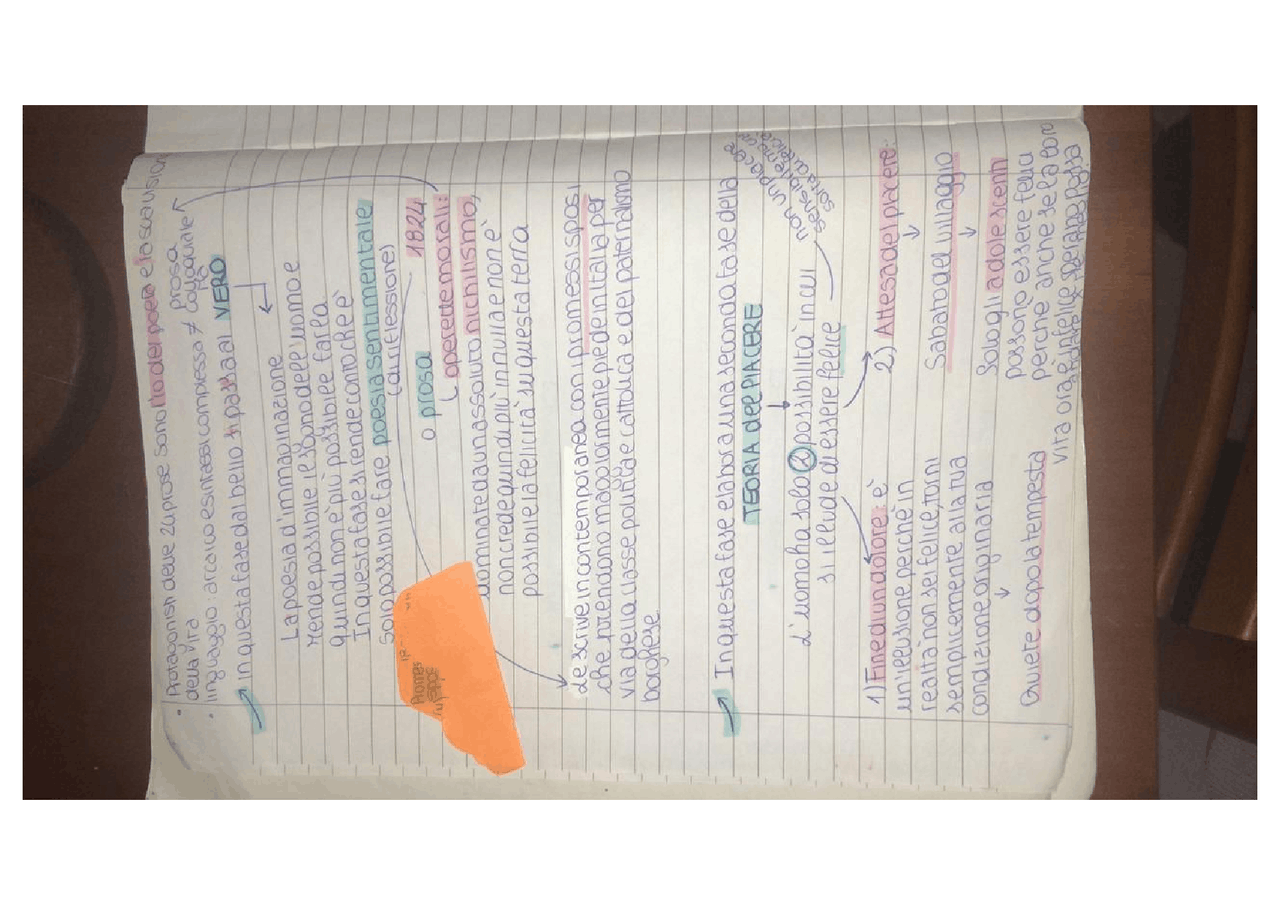 • Protagonisti delle 2 liriche sono l'io del poeta e la sua vision
della vita
• linguaggio: arcaico e sintassi complessa ≠ prosa
colloquiale
In questa fase dal bello si passa al VERO
La poesia d'immaginazione
rende possibile i e sbono dell'uomo e
quindi non è più possibile farla
In questa fase si rende conto che è
solo possibile fare poesia sentimentale
(o riflessione)
o prosa 1824
(operette morali:
dominate da un assoluto nichilismo,
non crede quindi più in nulla e non è
possibile la felicità su questa terra
Promessi
sposi
Le scrive in contemporanea con i promessi sposi
che prendono maggiormente piede in Italia per
via della classe politica e cattolica e del paternalismo
borghese
In questa fase elabora una seconda fase della
TEORIA del PIACERE
L'uomo ha solo 2 possibilità in cui
si illude di essere felice
non un piacere
sensibile ma una
sorta di felicità
1) Fine di un dolore: è
un'illusione perchè in
realtà non sei felice, torni
semplicemente alla tua
condizione originaria
Quiete dopo la tempesta
2) Attesa del piacere:
Sabato del villaggio
Solo gli adolescenti
possono essere felici
perchè anche se la loro
vita ora è felice